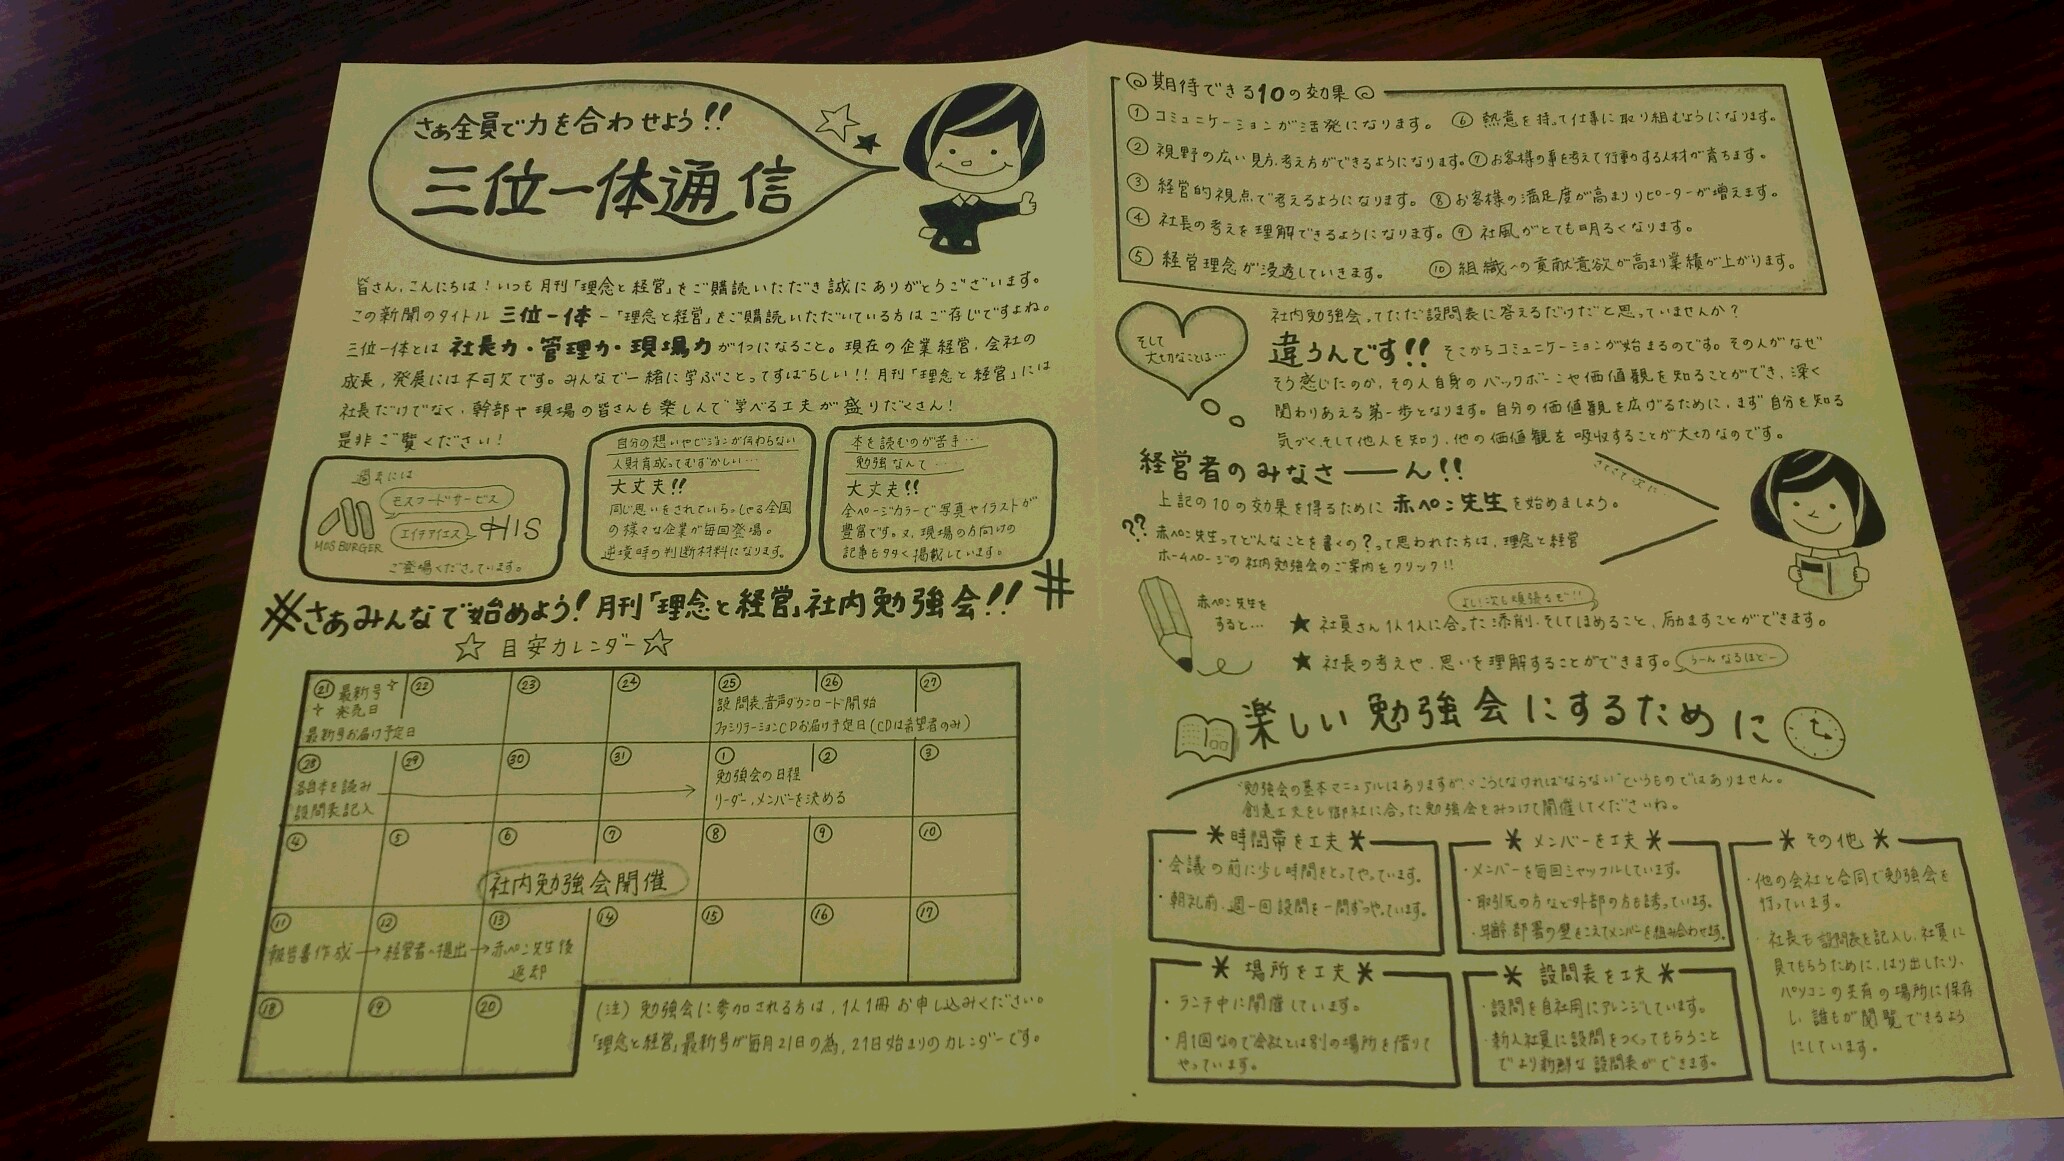 さぁ全員で力を合わせよう!!
三位一体通信
皆さん、こんにちは!いつも月刊「理念と経営」をご購読いただき誠にありがとうございます。
この新聞のタイトル 三位一体 ー「理念と経営」をご購読いただいている方はご存じですよね。
三位一体とは 社長力・管理力・現場力 が1つになること。現在の企業経営、会社の
成長、発展には不可欠です。みんなで一緒に学ぶことってすばらしい!!月刊「理念と経営」には
社長だけでなく、幹部や現場の皆さんも楽しんで学べる工夫が盛りだくさん!
是非ご覧ください!
過去には
モスフードサービス
MOS BURGER
エイチアイエス HIS
ご登場くださっています。
自分の想いやビジョンが伝わらない
人財育成ってむずかしい…
大丈夫!!
同じ思いをされていらっしゃる全国
の様々な企業が毎回登場。
逆境時の判断材料になります。
本を読むのが苦手…
勉強なんて……
大丈夫!!
全ページカラーで写真やイラストが
豊富です。又、現場の方向けの
記事も多く掲載しています。
さぁみんなで始めよう!月刊「理念と経営」社内勉強会!!
☆目安カレンダー☆
㉑ 最新号 ㉒ ㉓ ㉔ ㉕ ㉖ ㉗
発売日
最新号お届け予定日
設問表、音声ダウンロード開始
ファシリテーションCDお届け予定日(CDは希望者のみ)
㉘ ㉙ ㉚ ㉛ ① ② ③
各自本を読み
設問表記入
勉強会の日程
リーダー、メンバーを決める
④ ⑤ ⑥ ⑦ ⑧ ⑨ ⑩
社内勉強会開催
⑪ ⑫ ⑬ ⑭ ⑮ ⑯ ⑰
報告書作成→経営者へ提出→赤ペン先生後
返却
⑱ ⑲ ⑳
(注)勉強会に参加される方は、1人1冊お申し込みください。
「理念と経営」最新号が毎月21日の為、21日始まりのカレンダーです。
◎期待できる10の効果◎
① コミュニケーションが活発になります。
② 視野の広い見方、考え方ができるようになります。
③ 経営的視点で考えるようになります。
④ 社長の考えを理解できるようになります。
⑤ 経営理念が浸透していきます。
⑥ 熱意を持って仕事に取り組むようになります。
⑦ お客様の事を考えて行動する人材が育ちます。
⑧ お客様の満足度が高まりリピーターが増えます。
⑨ 社風がとても明るくなります。
⑩ 組織への貢献意欲が高まり業績が上がります。
そして
大切なことは…
社内勉強会ってただ設問表に答えるだけだと思っていませんか?
違うんです!! そこからコミュニケーションが始まるのです。その人がなぜ
そう感じたのか、その人自身のバックボーンや価値観を知ることができ、深く
関わりあえる第一歩となります。自分の価値観を広げるために、まず自分を知る
気づく、そして他人を知り、他の価値観を吸収することが大切なのです。
経営者のみなさーーん!!
さてさて次に…
上記の10の効果を得るために 赤ペン先生 を始めましょう。
?? 赤ペン先生ってどんなことを書くの?って思われた方は、理念と経営
ホームページの社内勉強会のご案内をクリック!!
赤ペン先生を
すると…
よし!次も頑張るぞ!!
★ 社員さん1人1人に合った添削、そしてほめること、励ますことができます。
★ 社長の考えや、思いを理解することができます。
うーんなるほどー
楽しい勉強会にするために
勉強会の基本マニュアルはありますが、"こうしなければならない"というものではありません。
創意工夫をし御社に合った勉強会をみつけて開催してくださいね。
＊時間帯を工夫＊
・会議の前に少し時間をとってやっています。
・朝礼前、週一回設問を一問ずつやっています。
＊メンバーを工夫＊
・メンバーを毎回シャッフルしています。
・取引先の方など外部の方も誘っています。
・年齢、部署の壁をこえてメンバーを組み合わせます。
＊その他＊
・他の会社と合同で勉強会を
行っています。
・社長も設問表を記入し、社員に
見てもらうために、はり出したり、
パソコンの共有の場所に保存
し、誰もが閲覧できるよう
にしています。
＊場所を工夫＊
・ランチ中に開催しています。
・月1回なので会社とは別の場所を借りて
やっています。
＊設問表を工夫＊
・設問を自社用にアレンジしています。
・新入社員に設問をつくってもらうこと
でより新鮮な設問表ができます。